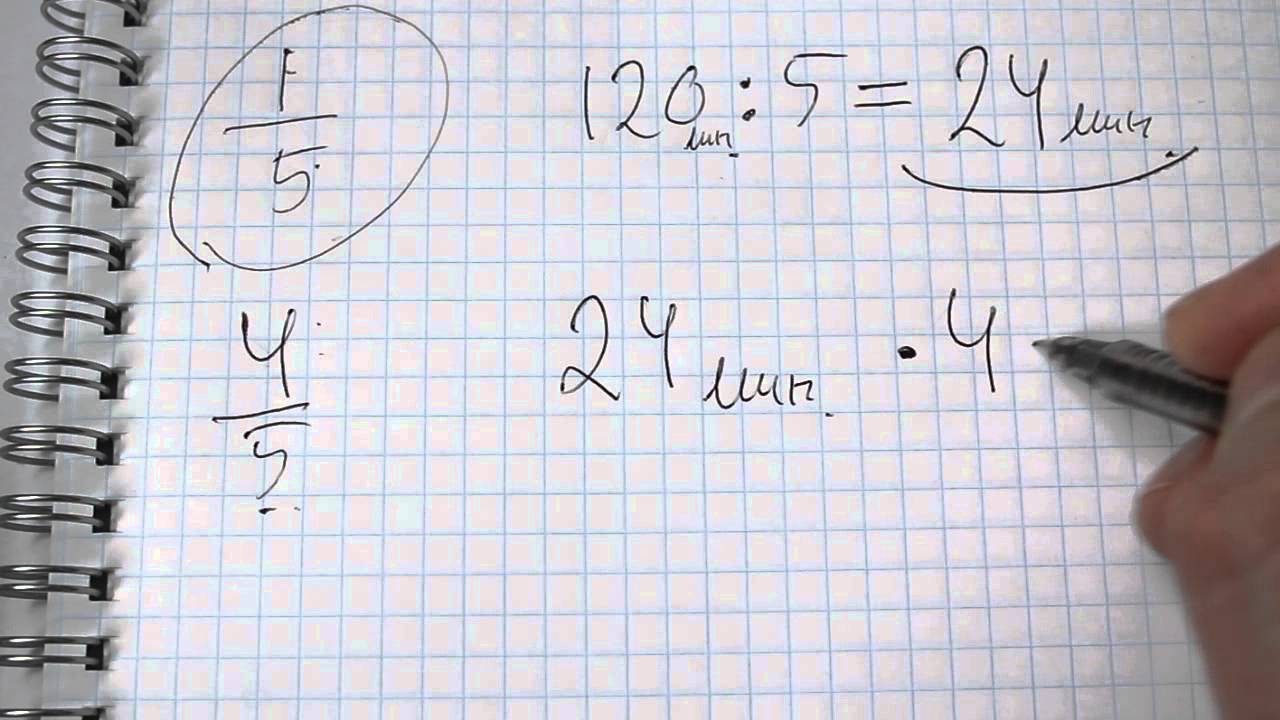 1/5 120 мин. : 5 = 24 мин.
4/5 24 мин. · 4